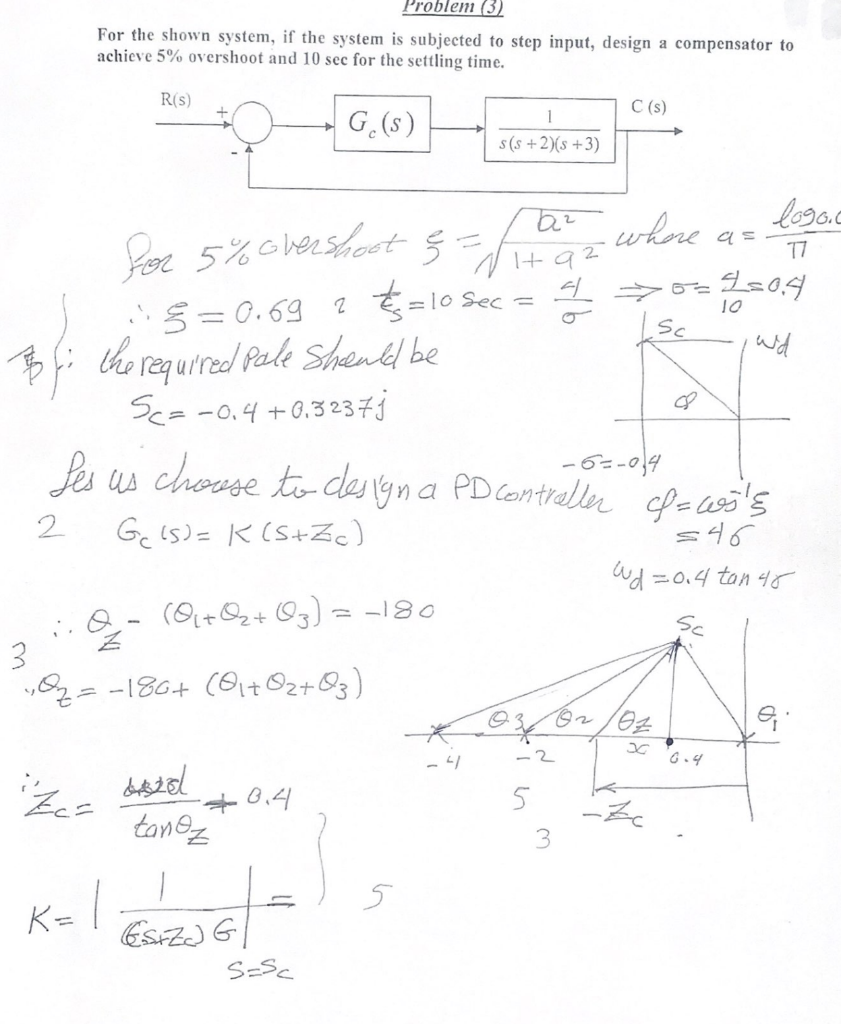 Problem (3)
For the shown system, if the system is subjected to step input, design a compensator to
achieve 5% overshoot and 10 sec for the settling time.
R(s)
+
-
G_c(s)
1
s(s+2)(s+3)
C (s)
For 5% overshoot ξ = √(a² / 1+a²) where a = log0.0 / π
∴ ξ = 0.69 , t_s = 10 sec = 4/σ ⇒ σ = 4/10 = 0.4
∴ the required pole should be
S_c = -0.4 + 0.3237j
S_c
ωd
φ
-σ=-0.4
Les us choose to design a PD controller
φ = cos⁻¹ξ
2 G_c(s) = K(S+Z_c)
= 46
ωd = 0.4 tan 46
∴ θ_z - (θ1+θ2+θ3) = -180
3
∴ θ_z = -180 + (θ1+θ2+θ3)
S_c
θ3 θ2 θ_z θ1
-4 -2 x 0.4
5 -Z_c
3
∴ Z_c = / tanθ_z + 0.4
K = | 1 / (S+Z_c) G | =
S=S_c
5